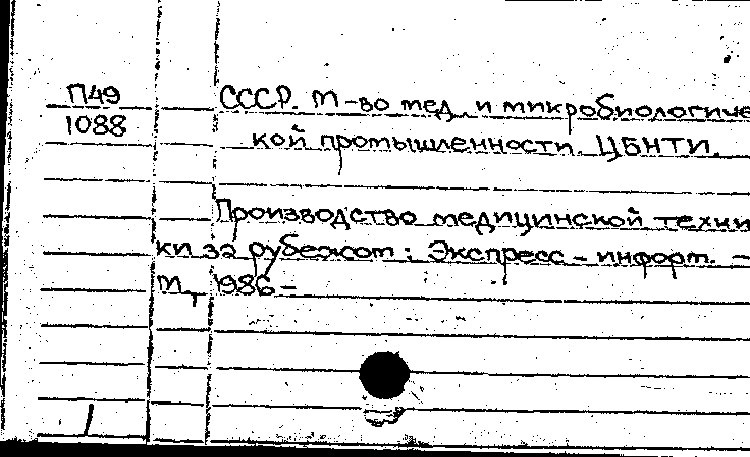 П49
1088
СССР. М-во мед. и микробиологичес
кой промышленности. ЦБНТИ.
Производство медицинской техни
ки за рубежом: Экспресс-информ. -
М., 1986 -